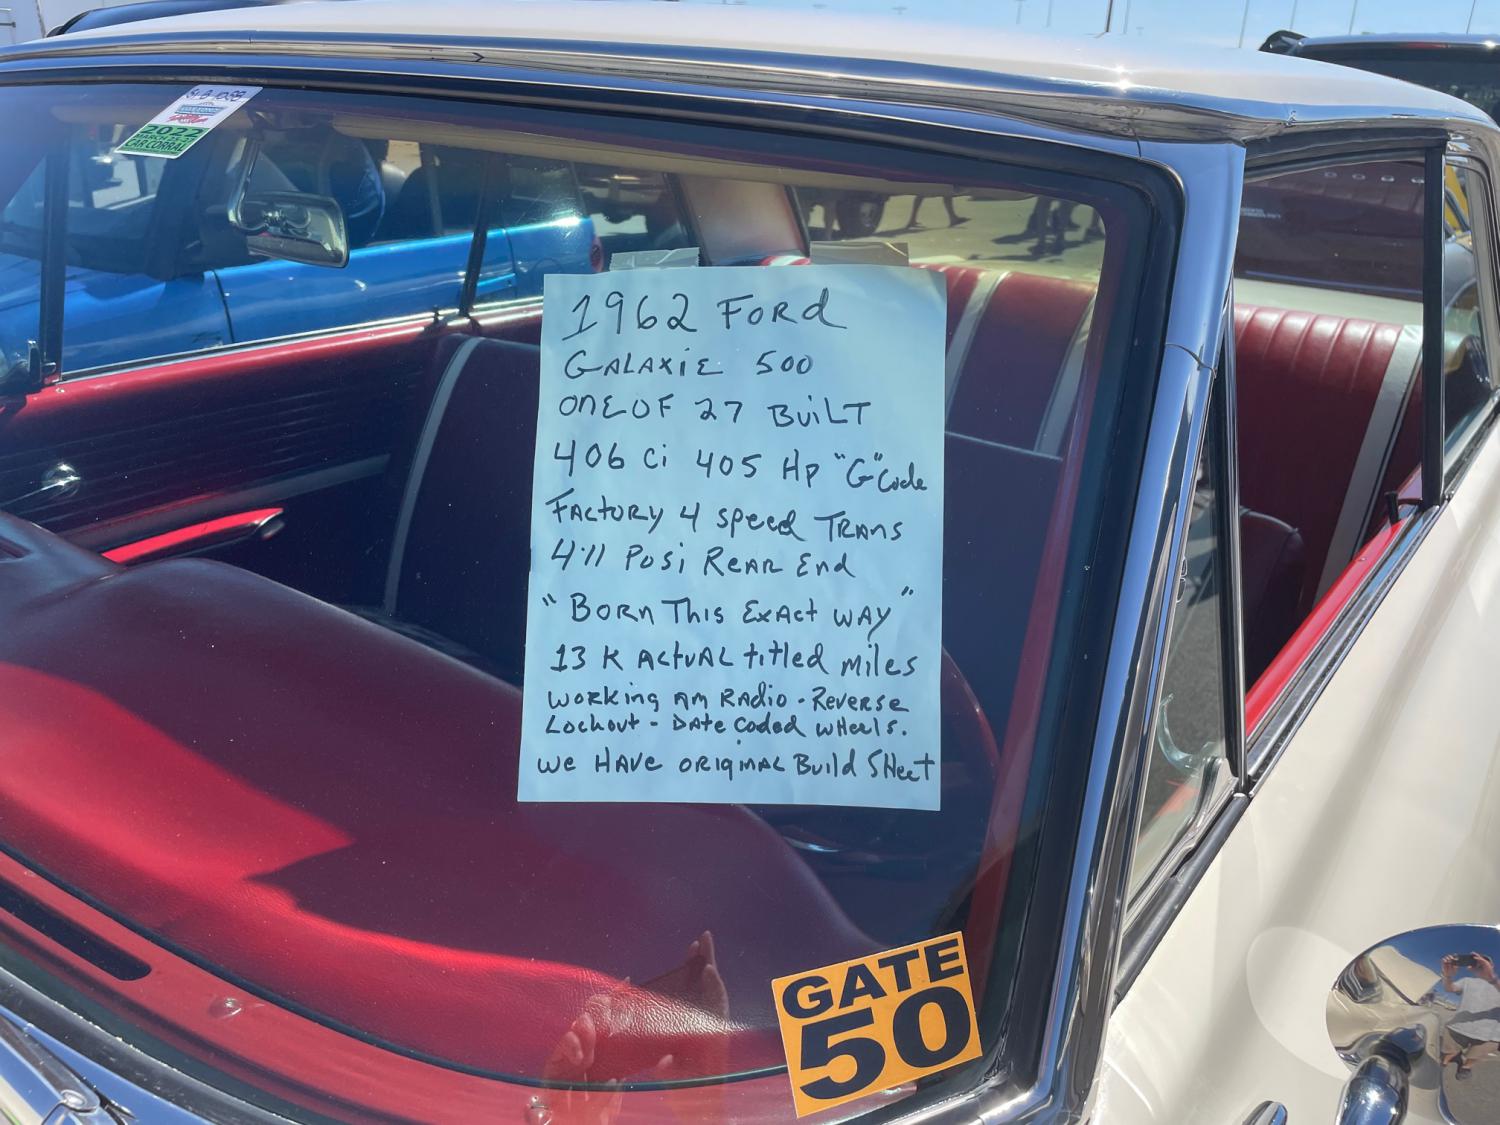 2022
CAR CORRAL
1962 FORd
GALAXiE 500
ONE OF 27 BuiLT
406 Ci 405 Hp "G" Code
FACTORY 4 speed TRANS
4.11 Posi REAR End
"BORN THis EXAct WAY"
13 K ActuAL titled miles
WORKing AM RAdio - REVERSE
Lockout - DATE Coded WHeels.
We HAVe ORIGINAL Build SHeet
GATE
50